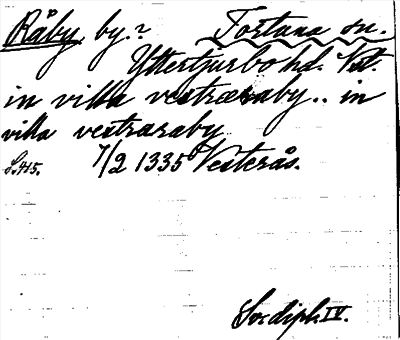 Råby by.? Tortuna sn.
Yttertjurbo hd. Vstl.
in villa vestræraby.. in
villa vestraraby
S.415. 7/2 1335 Vesterås.
Sv:dipl. IV.